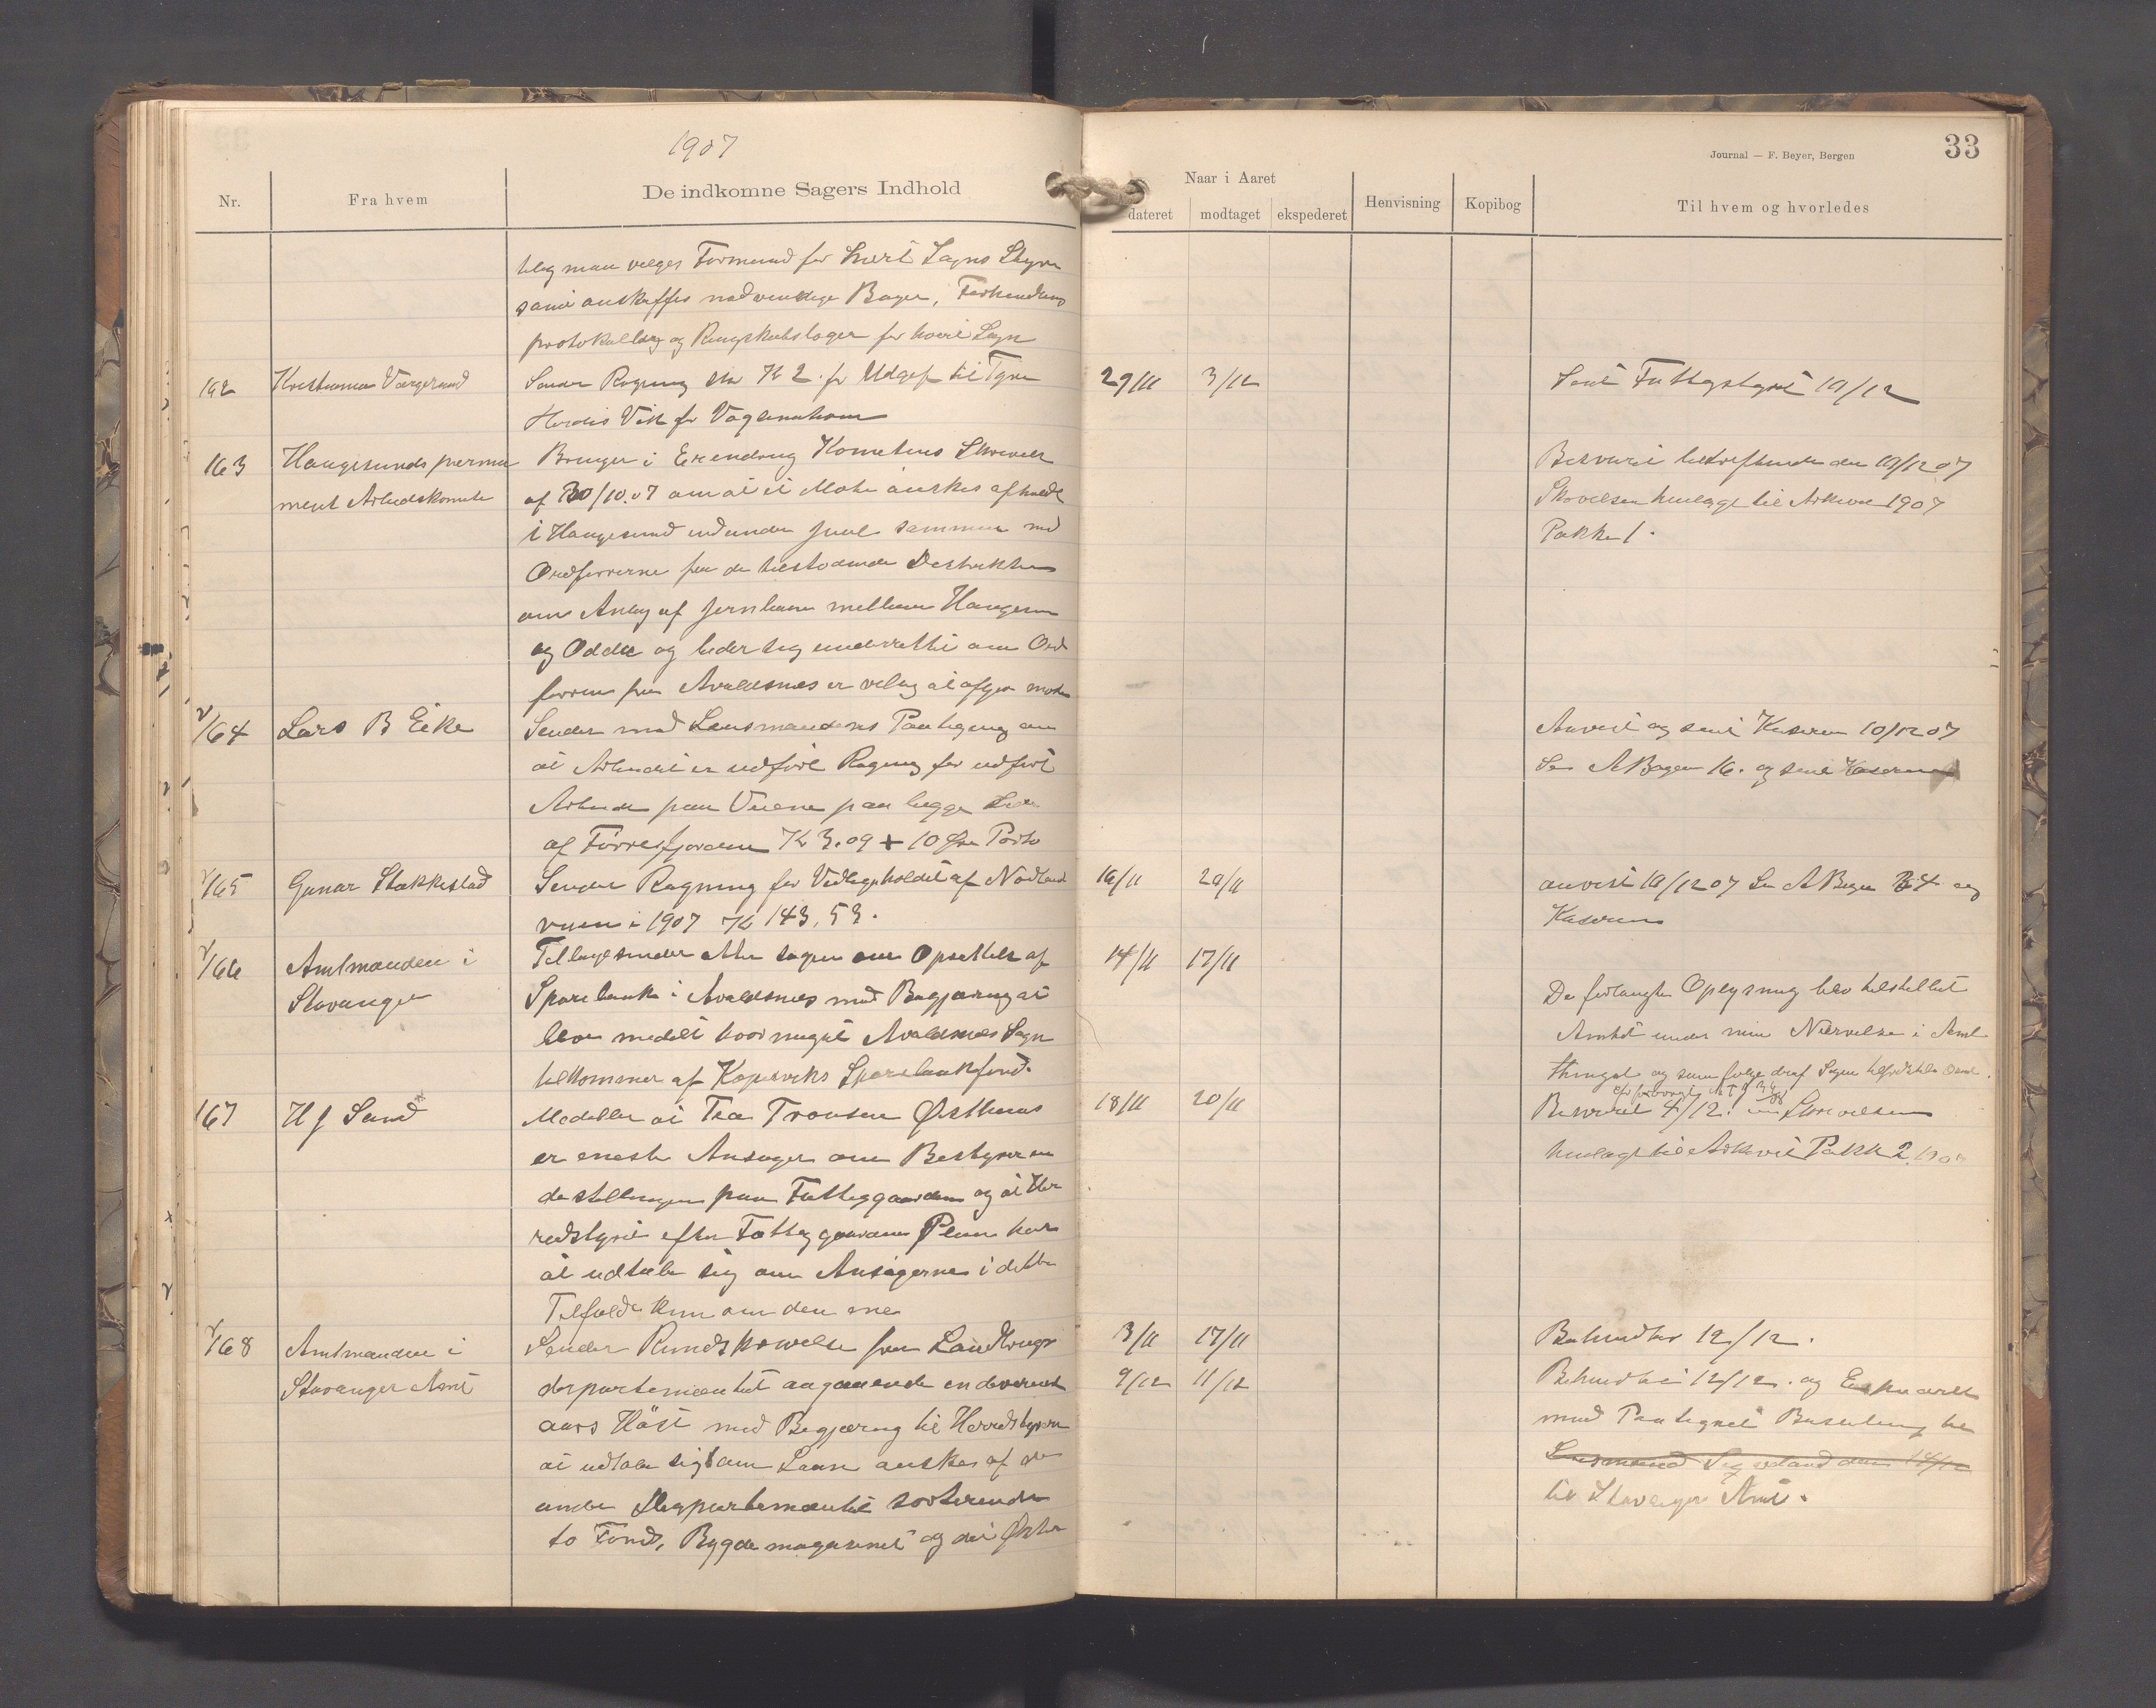 1907
33
Journal — F. Beyer, Bergen
Nr.
Fra hvem
De indkomne Sagers Indhold
Naar i Aaret
dateret
modtaget
ekspederet
Henvisning
Kopibog
Til hvem og hvorledes
man velges Formand for hvert Sogns Styre
samt anskaffes nødvendige Bøger, Forhandlings
protokoller og Regnskabsbøger for hvert Sogn
162
Kristiania Værgeraad
Sender Regning stor K 2. for Udgift til Tyra
Herdis Vik for Vogsenhavn
29/11
3/12
Sent Fattigstyret 19/12
163
Haugesunds perma
nent Arbeidskomite
Bringer i Erendring Komiteens Skrivelse
af 30/10.07 om at et Møte ønskes afholdt
i Haugesund indunder Jul sammen med
Ordførerne fra de tilstødende Destrikter
om Anlæg af Jernbane mellem Haugesun
og Odda og beder sig underrettet om Ord
føreren fra Avaldsnes er villig at afgi møte
Besvaret bekræftende den 19/12 07
Skrivelsen henlagt til Arkivet 1907
Pakke 1.
164
Lars B Eike
Sender med Lensmandens Paategning om
at Arbeidet er udført Regning for udført
Arbeide paa Veiene paa begge Sider
af Førresfjorden K 3.09 + 10 Øre Porto
Anvist og sent Kaserer 10/12 07
Se A Bogen 16. og sent Kasereren
165
Gunar Stakkestad
Sender Regning for Vedligeholdet af Nordlands
veien i 1907 K 143,53.
16/11
20/11
anvist 19/12 07 Se A Bogen 24 og
Kasereren
166
Amtmanden i
Stavanger
Tilbagesender Atter sagen om Opsettelse af
Sparebank i Avaldsnes med Begjæring at
blive meddelt hvor meget Avaldsnes Sogn
tilkommer af Kopervik Sparebankfond.
14/11
17/11
De forlangte Oplysning blev tilstillet
Amtet under min Nærværelse i Amt
thinget og som følge deraf Sagen
167
H J Sund
Meddeler at Tea Tronsen Østhus
er eneste Ansøger om Bestyrerin
destillingen paa Fattiggaarden og at Her
redstyret efter Fattiggaardens Plan har
at udtale sig om Ansøgerne i dette
Tilfælde kun om den ene
18/11
20/11
Besvaret 4/12. Skrivelsen
henlagt til Arkivet Pakke 2. 1907
168
Amtmanden i
Stavanger Amt
Sender Rundskrivelse fra Landbrugs
departementet angaaende indeværende
aars Høst med Begjæring til Herredstyret
at udtale sig om Laan ønskes af de
under Departementet sorterende
to Fond, Bygdemagasinet og det Øster
3/11
17/11
9/12
11/12
Behandlet 12/12.
Behandlet 12/12. og
med Paategnet Beslutning til
Lensmand
til Stavanger Amt.